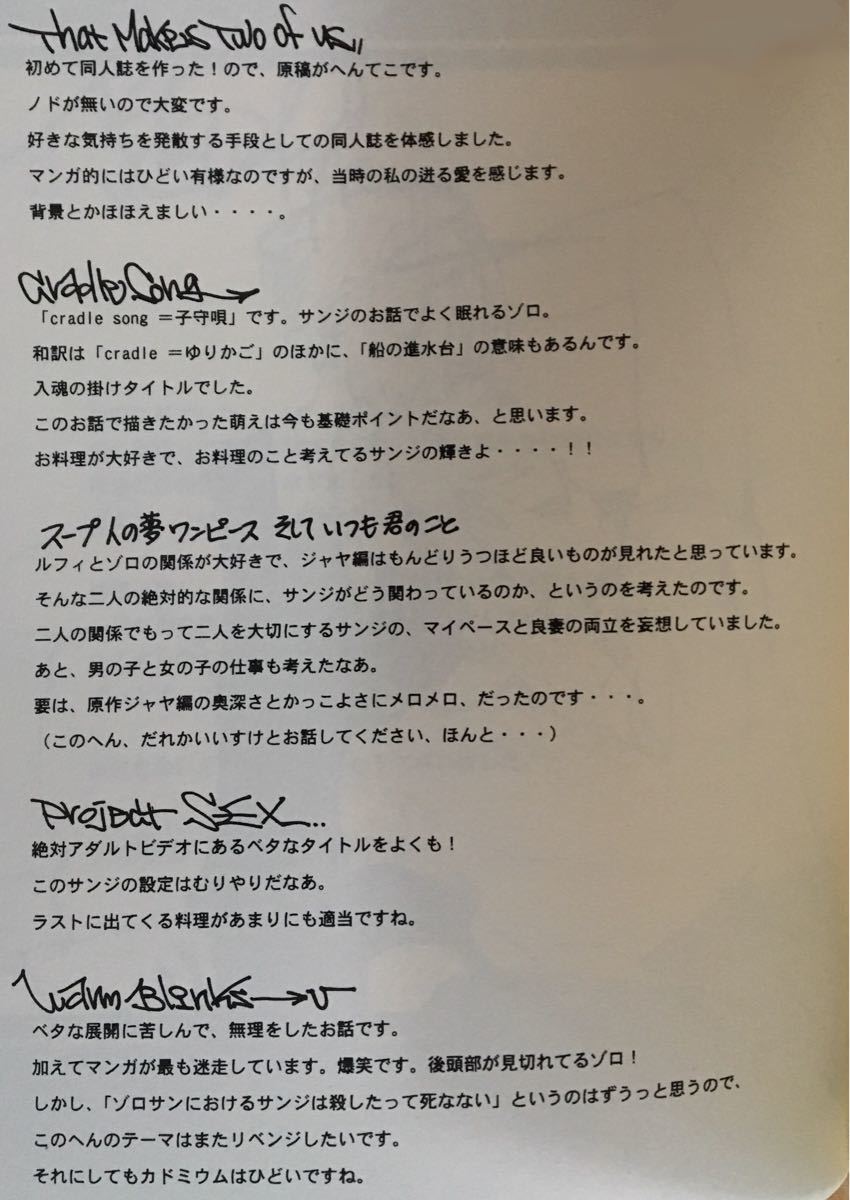 That Makes Two of us,,
初めて同人誌を作った！ので、原稿がへんてこです。
ノドが無いので大変です。
好きな気持ちを発散する手段としての同人誌を体感しました。
マンガ的にはひどい有様なのですが、当時の私の迸る愛を感じます。
背景とかほほえましい・・・・。
cradle Song
「cradle song ＝子守唄」です。サンジのお話でよく眠れるゾロ。
和訳は「cradle ＝ゆりかご」のほかに、「船の進水台」の意味もあるんです。
入魂の掛けタイトルでした。
このお話で描きたかった萌えは今も基礎ポイントだなあ、と思います。
お料理が大好きで、お料理のこと考えてるサンジの輝きよ・・・・！！
スープ人の夢ワンピース そしていつも君のこと
ルフィとゾロの関係が大好きで、ジャヤ編はもんどりうつほど良いものが見れたと思っています。
そんな二人の絶対的な関係に、サンジがどう関わっているのか、というのを考えたのです。
二人の関係でもって二人を大切にするサンジの、マイペースと良妻の両立を妄想していました。
あと、男の子と女の子の仕事も考えたなあ。
要は、原作ジャヤ編の奥深さとかっこよさにメロメロ、だったのです・・・。
（このへん、だれかいいすけとお話してください、ほんと・・・）
Project SEX..
絶対アダルトビデオにあるベタなタイトルをよくも！
このサンジの設定はむりやりだなあ。
ラストに出てくる料理があまりにも適当ですね。
Warm Blinks
ベタな展開に苦しんで、無理をしたお話です。
加えてマンガが最も迷走しています。爆笑です。後頭部が見切れてるゾロ！
しかし、「ゾロサンにおけるサンジは殺したって死なない」というのはずうっと思うので、
このへんのテーマはまたリベンジしたいです。
それにしてもカドミウムはひどいですね。